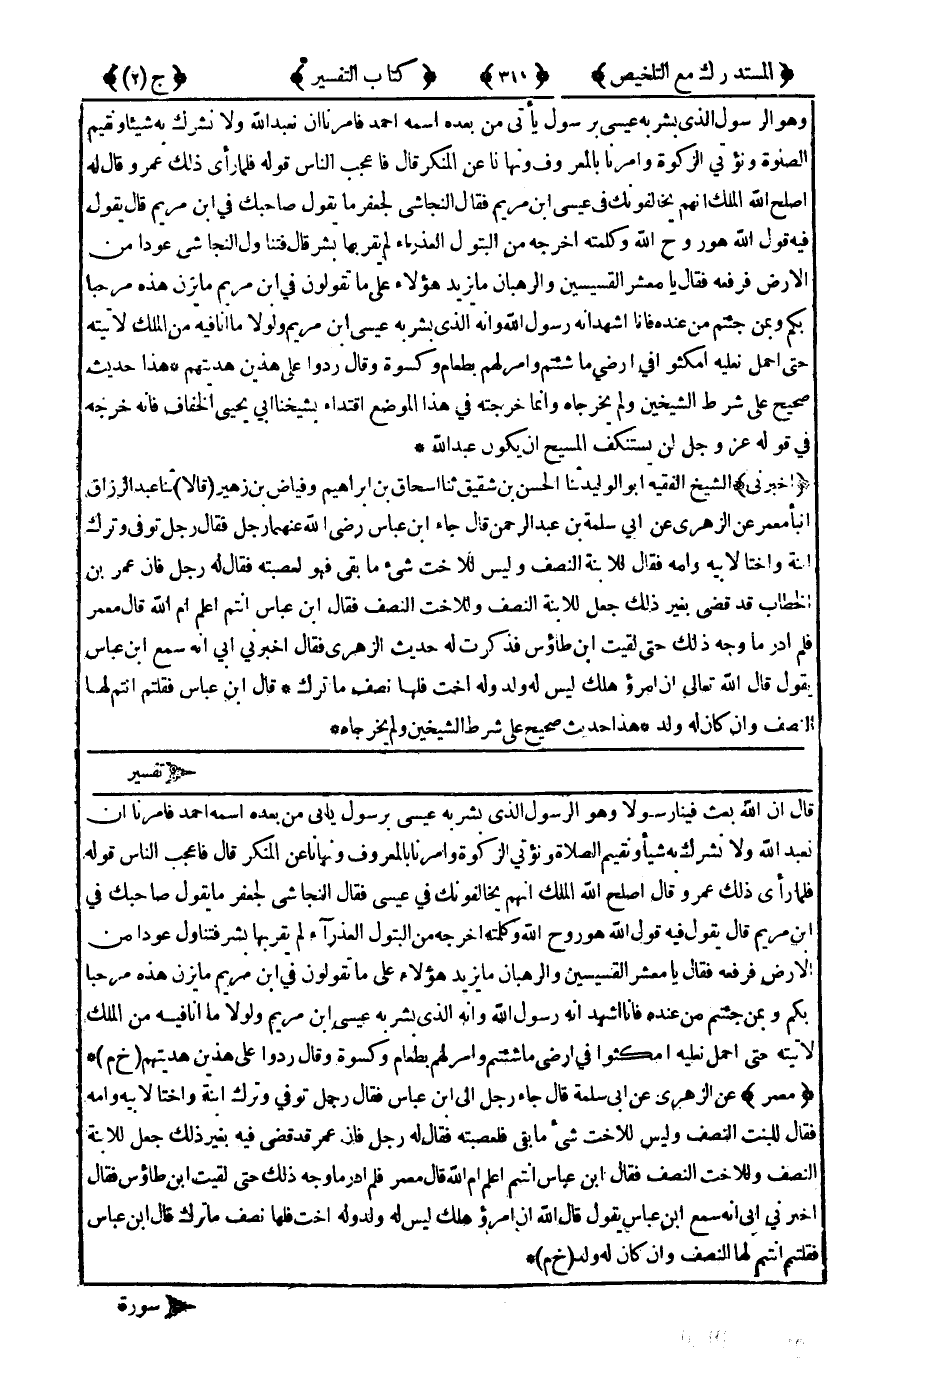 ﴿المستدرك مع التلخيص﴾ ﴿٣١٠﴾ ﴿كتاب التفسير﴾ ﴿ج(٢)﴾
وهو الرسول الذى بشر به عيسى برسول يأتى من بعده اسمه احمد فامرنا ان نعبد الله ولا نشرك به شيئا ونقيم
الصلوة ونؤتي الزكوة وامرنا بالمعروف ونهانا عن المنكر قال فاعجب الناس قوله فلما رأى ذلك عمرو قال له
اصلح الله الملك انهم يخالفونك فى عيسى ابن مريم فقال النجاشى لجعفر ما يقول صاحبك في ابن مريم قال يقول
فيه قول الله هو روح الله وكلمته اخرجه من البتول العذراء لم يقربها بشر قال فتناول النجاشي عودا من
الارض فرفعه فقال يا معشر القسيسين والرهبان ما يزيد هؤلاء على ما تقولون في ابن مريم مايزن هذه مرحبا
بكم وبمن جئتم من عنده فانا اشهد انه رسول الله وانه الذى بشر به عيسى ابن مريم ولولا ما انا فيه من الملك لاتيته
حتى احمل نعليه امكثوا في ارضي ما شئتم وامر لهم بطعام وكسوة وقال ردوا على هذين هديتهم *هذا حديث
صحيح على شرط الشيخين ولم يخرجاه وانما خرجته في هذا الموضع اقتداء بشيخنا ابي يحيى الخفاف فانه خرجه
في قوله عز وجل لن يستنكف المسيح ان يكون عبد الله *
﴿اخبرنى﴾ الشيخ الفقيه ابو الوليد ثنا الحسن بن شقيق ثنا اسحاق بن ابراهيم وفياض بن زهير (قالا) ثنا عبد الرزاق
انبأ معمر عن الزهرى عن ابي سلمة بن عبد الرحمن قال جاء ابن عباس رضى الله عنهما رجل فقال رجل توفى وترك
ابنة واختا لابيه وامه فقال للابنة النصف وليس للاخت شئ ما بقى فهو لعصبته فقال له رجل فان عمر بن
الخطاب قد قضى بغير ذلك جعل للابنة النصف وللاخت النصف فقال ابن عباس انتم اعلم ام الله قال معمر
فلم ادر ما وجه ذلك حتى لقيت ابن طاؤس فذكرت له حديث الزهرى فقال اخبرني ابي انه سمع ابن عباس
يقول قال الله تعالى ان امرؤ هلك ليس له ولد وله اخت فلها نصف ما ترك * قال ابن عباس فقلتم انتم لها
النصف وان كان له ولد *هذا حديث صحيح على شرط الشيخين ولم يخرجاه*
تفسير
قال ان الله بعث فينا رسولا وهو الرسول الذى بشر به عيسى برسول ياتى من بعده اسمه احمد فامرنا ان
نعبد الله ولا نشرك به شيأ ونقيم الصلاة ونؤتي الزكوة وامرنا بالمعروف ونهانا عن المنكر قال فاعجب الناس قوله
فلما رأى ذلك عمرو قال اصلح الله الملك انهم يخالفونك في عيسى فقال النجاشى لجعفر ما يقول صاحبك في
ابن مريم قال يقول فيه قول الله هو روح الله وكلمته اخرجه من البتول العذرآء لم يقربها بشر فتناول عودا من
الارض فرفعه فقال يا معشر القسيسين والرهبان ما يزيد هؤلاء على ما تقولون في ابن مريم مايزن هذه مرحبا
بكم وبمن جئتم من عنده فانا اشهد انه رسول الله وانه الذى بشر به عيسى ابن مريم ولولا ما انا فيه من الملك
لاتيته حتى احمل نعليه امكثوا في ارضى ما شئتم وامر لهم بطعام وكسوة وقال ردوا على هذين هديتهم (خ م)*
﴿معمر﴾ عن الزهرى عن ابى سلمة قال جاء رجل الى ابن عباس فقال رجل توفي وترك ابنة واختا لابيه وامه
فقال للبنت النصف وليس للاخت شئ ما بقى فلعصبته فقال له رجل فان عمر قد قضى فيه بغير ذلك جعل للابنة
النصف وللاخت النصف فقال ابن عباس انتم اعلم ام الله قال معمر فلم ادر ما وجه ذلك حتى لقيت ابن طاؤس فقال
اخبرني ابى انه سمع ابن عباس يقول قال الله ان امرؤ هلك ليس له ولد وله اخت فلها نصف ما ترك قال ابن عباس
فقلتم انتم لها النصف وان كان له ولد (خ م)*
سورة